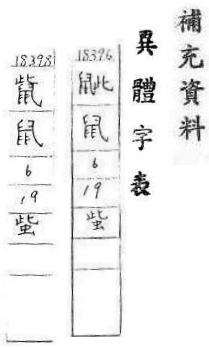 補充資料
異體字表
18396
鼠
6
19
18398
鼠
6
19